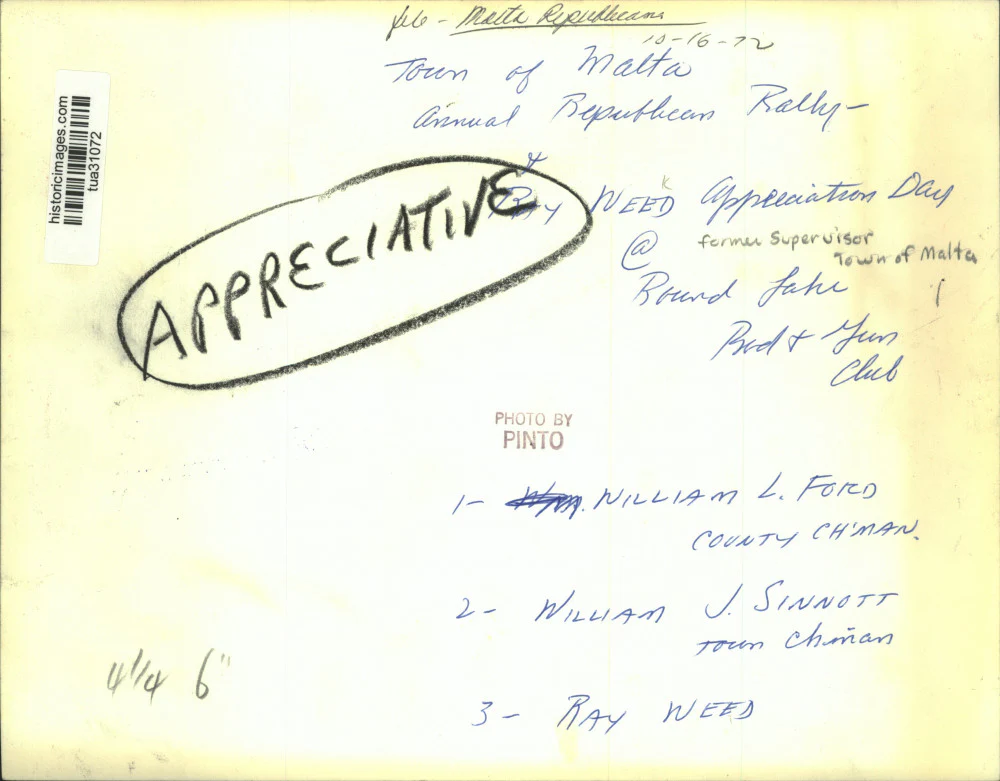 Malta Republicans
10-16-72
Town of Malta
Annual Republican Rally-
&
RAY WEED Appreciation Day
@ former Supervisor
Town of Malta
Round Lake
Rod + Gun
Club
APPRECIATIVE
historicimages.com
tua31072
PHOTO BY
PINTO
1- Wm. WILLIAM L. FORD
COUNTY CH'MAN.
2- WILLIAM J. SINNOTT
TOWN Ch'man
4 1/4 6"
3- RAY WEED